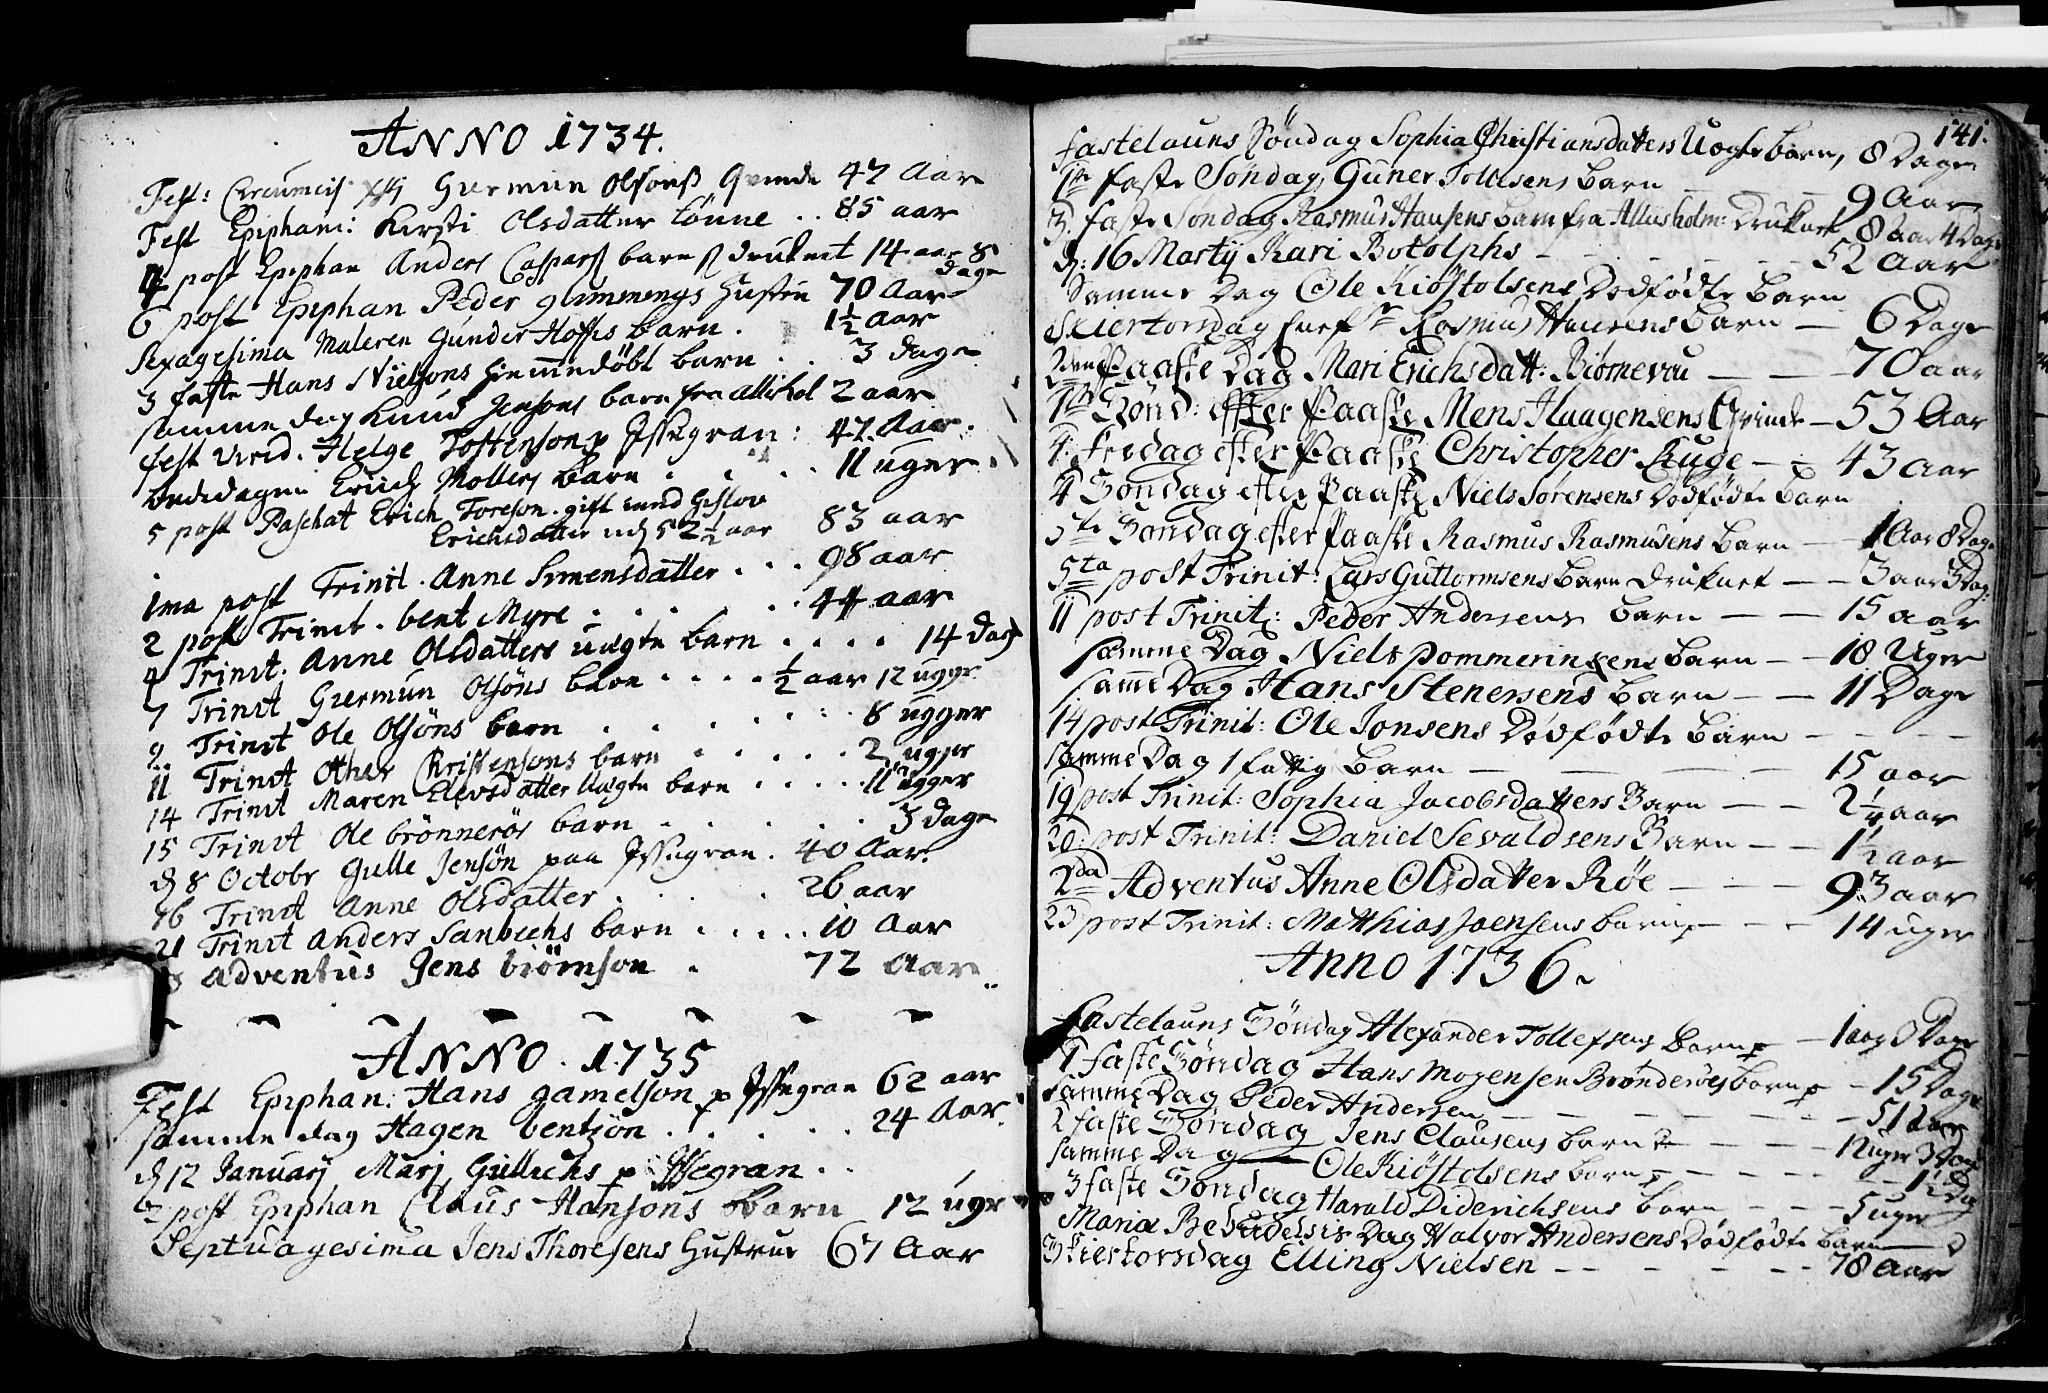 ANNO 1734.
Fest: Circumcis: Xsti Giermun Olsons Qvinde 47 Aar
Fest Epiphani: Kirsti Olsdatter Lönne . . 85 aar
4 post Epiphan Anders Caspars barn druknet 14 aar 8 dage
6 post Epiphan Peder gummings Hustru 70 Aar
Sexagesima Maleren Gunder Hoffis barn . 1½ Aar
3 faste Hans Nielsons Hiemmedöbt barn . . 3 dage
samme dag Knud Jensons barn fra 2 aar
fest virid. Helge Tostenson p Issegran: 47 Aar.
bededagen Erich Mollers barn . . . . 11 uger
5 post Paschat Erich Toreson. gift med
Erichsdatter udj 52½ aar 83 aar
1ma post Trinit. Anne Simensdatter . . . 98 aar
2 post Trinit. bent Myre . . . . . 44 aar
4 Trinit. Anne Olsdatters uægte barn . . . . 14 dage
7 Trinit Giermun Olsöns barn . . . . ½ aar 12 ugger
9 Trinit Ole Olsöns barn . . . . . 8 ugger
11 Trinit Other Christensons barn . . . . 2 ugger
14 Trinit Maren Elevsdatter Uægte barn . . . . 11 ugger
15 Trinit Ole brönnerös barn . . . . . 3 dage
d 8 Octobr Gulle Jensön paa Issegran . 40 Aar.
16 Trinit Anne Olsdatter . . . . 26 aar
21 Trinit Anders Sanbechs barn . . . . . 10 Aar
3 Adventus Jens biörnson . 72 Aar
ANNO. 1735
Fest Epiphan: Hans gamelson p Issegran 62 aar
samme dag Hagen bentsön . . . . . 24 Aar.
d 12 January Marj Gulluchs p Issegran . .
post Epiphan Claus Hansons Barn 12 ugr
Septuagesima Jens Thoresens Hustrue 67 Aar
141.
Fastelauns Söndag Sophia Christiansdatters Uægte barn, 8 Dage
1te Faste Söndag Guner Tollesens Barn — — 9 Aar
3. Faste Söndag Rasmus Hansens barn fra Alliisholm: Druknet 8 Aar 4 Dage
d: 16 Martij Kari Botolphs — — — 52 Aar
Samme Dag Ole Kiöstolsens Dödfödte Barn
Skiertorsdag Rasmus Hansens Barn — 6 Dage
2den Paaske Dag Mari Erichsdatt: Biörnevau — — 70 aar
1te Sönd: effter Paaske Mens Haagensens Qvinde — 53 Aar
4: Fredag efter Paaske Christopher Kuge — — 43 Aar
4 Söndag efter Paaske Niels Sörensens Dödfödte Barn
5te Söndag efter Paaske Rasmus Rasmusens Barn — 1 Aar 8 Dage
5ta post Trinit: Lars Guttormsens Barn druknet — — 3 aar 3 Dag:
11 post Trinit: Peder Andersens Barn — — 15 aar
samme Dag Niels pommerinkens Barn — — 18 Uger
samme Dag Hans Stenersens Barn — — 11 Dage
14 post Trinit: Ole Jonsens Dödfödte Barn — — — —
samme Dag 1 fattig Barn — — — 15 aar
19 post Trinit: Sophia Jacobsdatters Barn — — 2½ aar
20: post Trinit: Daniel Sevaldsens Barn — — 1½ aar
2da Adventus Anne Olsdatter Röe — — — 93 aar
23 post Trinit: Matthias Joensens barn — — 14 uger
Anno 1736.
Fastelauns Söndag Alexander Tollefsens Barn — 1 aar 3 Dage
1 Faste Söndag Hans Mogensen Brönderöes barn — 15 Dage
samme Dag Peder Andersen — — — — — 51 Aar
2 Faste Söndag Jens Clausens Barn — — — 12 uger 3 Dage
samme Dag Ole Kiöstolsens Barn — — — — 1½ Dag
3 Faste Söndag Harald Diderichsens Barn — — — 5 uger
Mariæ Bebudelsis Dag Halvor Andersens Dödfödte Barn — 0
Skiertorsdag Elling Nielsen — — — — 78 Aar